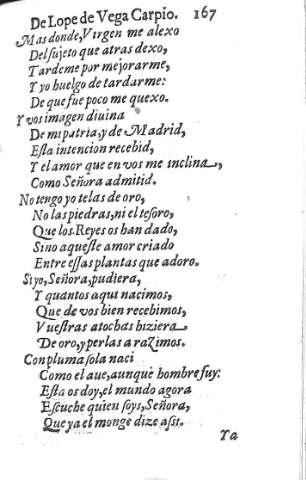 De Lope de Vega Carpio. 167
Mas donde, Virgen me alexo
Del sujeto que atras dexo,
Tardeme por mejorarme,
Y yo huelgo de tardarme:
De que fue poco me quexo.
Y vos imagen diuina
De mi patria, y de Madrid,
Esta intencion recebid,
Y el amor que en vos me inclina,
Como Señora admitid.
No tengo yo telas de oro,
No las piedras, ni el tesoro,
Que los Reyes os han dado,
Sino aqueste amor criado
Entre essas plantas que adoro.
Si yo, Señora, pudiera,
Y quantos aqui nacimos,
Que de vos bien recebimos,
Vuestras atochas hiziera
De oro, y perlas a razimos.
Con pluma sola naci
Como el aue, aunque hombre fuy:
Esta os doy, el mundo agora
Escuche quien soys, Señora,
Que ya el monge dize assi.
Ya